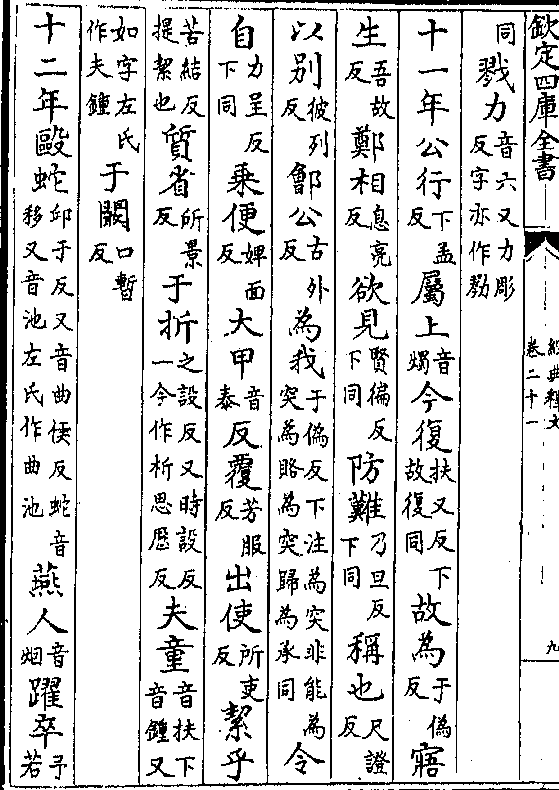 欽定四庫全書
經典釋文
卷二十一
九
同戮力音六又力彫反字亦作勠
十一年公行下孟反屬上音燭今復扶又反下故復同故為于偽反寤
生吾故反鄭相息亮反欲見賢徧反下同防難乃旦反下同稱也尺證反
以别彼列反鄶公古外反為我于偽反下注為突非能為突為賂為突歸為承同令
自力呈反下同乘便婢面反大甲音泰反覆芳服反出使所吏反絜乎
苦結反提挈也質省所景反于折之設反又時設反一今作析思歷反夫童音扶下音鍾又
如字左氏作夫鍾于闞口暫反
十二年毆蛇邱于反又音曲侯反蛇音移又音池左氏作曲池燕人音烟躍卒予若